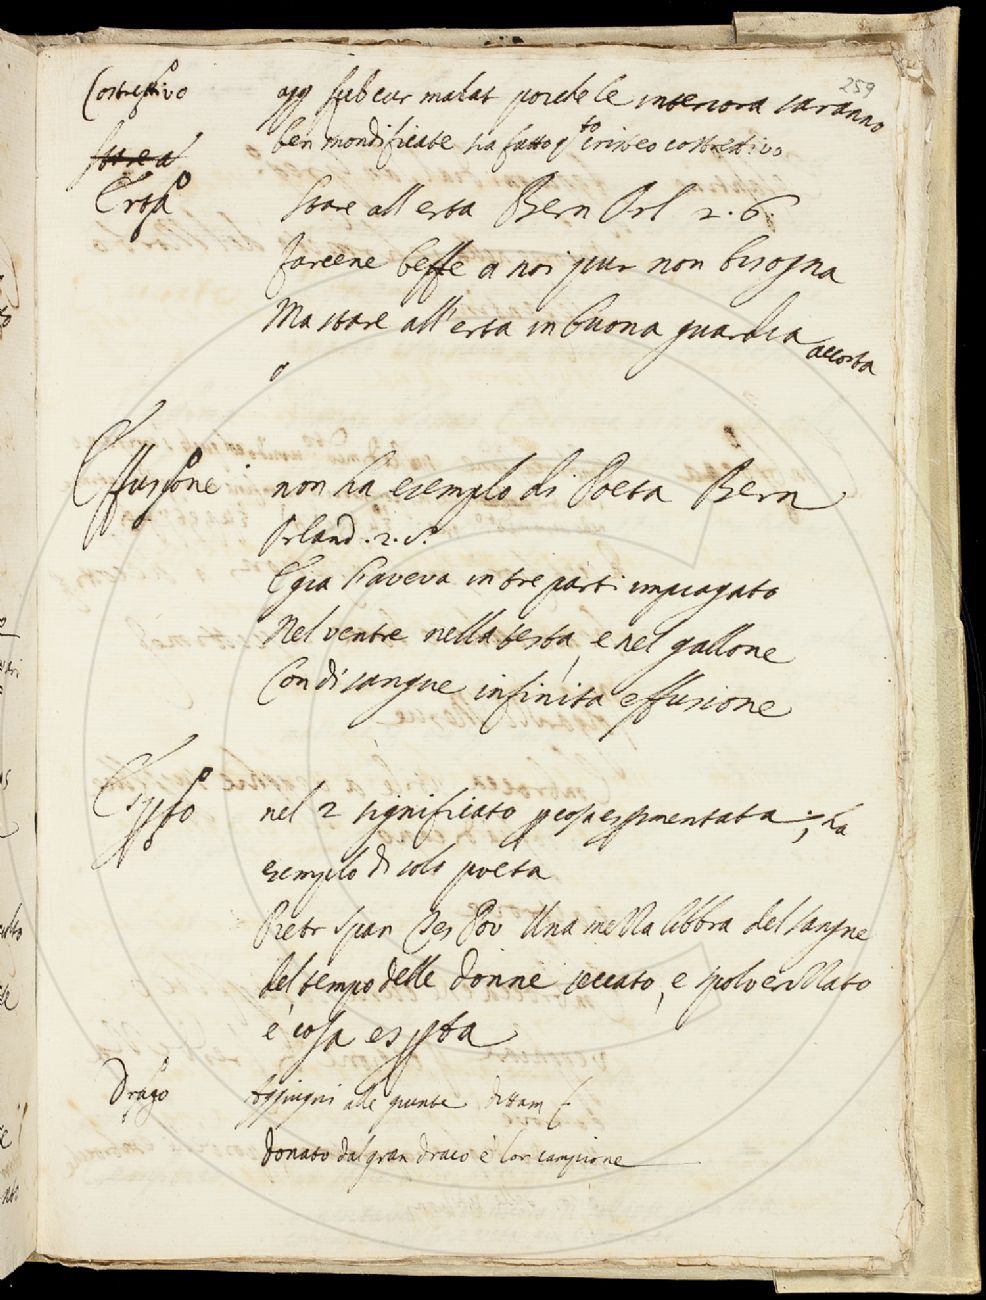 259
Costrettivo agg lib cur malat poiche le interiora saranno
ben mondificate sia fatto q.to cristeo costrettivo
Erto stare all erta Bern Orl 2. 6.
farcene beffe a noi pur non bisogna
Ma stare all'erta in buona guardia accorta
Effusione non ha esemplo di Poeta Bern
Orland. 2. 5.
E gia l'aveva in tre parti impiagato
Nel ventre nella testa, e nel gallone
Con di sangue infinita effusione
nel 2 significato ha
esemplo di solo poeta
Pietr Span Tes Pov Una mezza libbra del sangue
del tempo delle donne seccato, e spolverizzato
e cosa
Drago Aggiugni alle giunte Dittam
Donato dal gran draco è lor campione